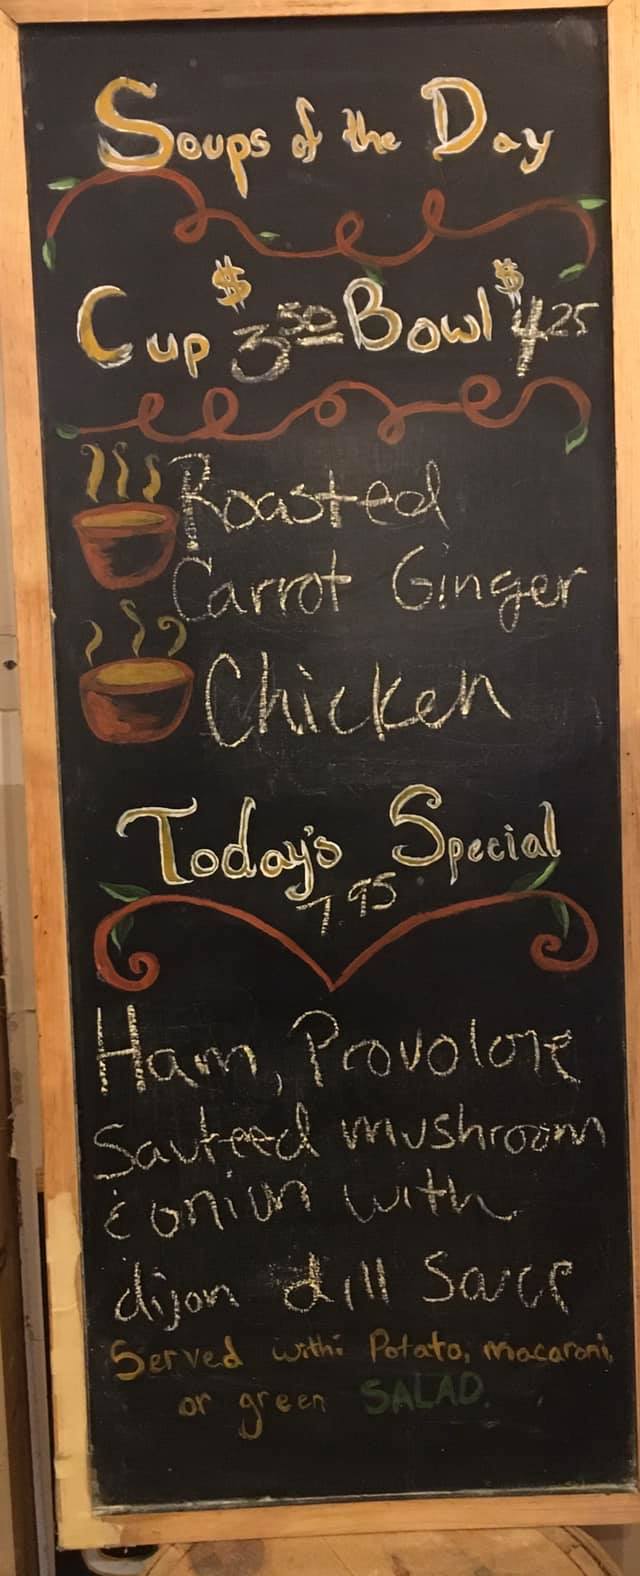 Soups of the Day
Cup $3.50 Bowl $4.25
Roasted
Carrot Ginger
Chicken
Today's Special
7.95
Ham, Provolone
Sauteed mushroom
& onion with
dijon dill Sauce
Served with: Potato, macaroni,
or green SALAD.